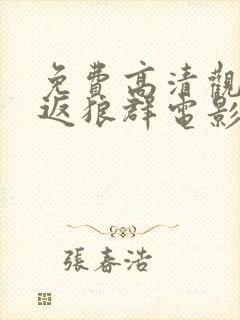 免費高清觀
返狼群電影
張春浩